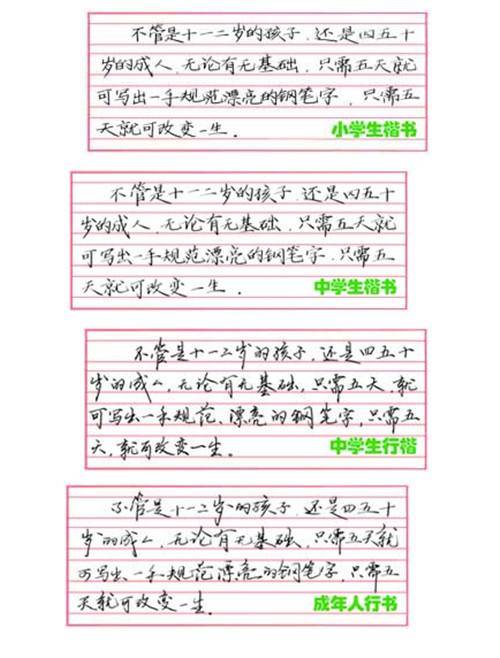 不管是十一二岁的孩子,还是四五十
岁的成人,无论有无基础,只需五天就
可写出一手规范漂亮的钢笔字,只需五
天就可改变一生.
小学生楷书
不管是十一二岁的孩子,还是四五十
岁的成人,无论有无基础,只需五天就
可写出一手规范漂亮的钢笔字,只需五
天就可改变一生.
中学生楷书
不管是十一二岁的孩子,还是四五十
岁的成人,无论有无基础,只需五天,就
可写出一手规范、漂亮的钢笔字,只需五
天,就可改变一生.
中学生行楷
不管是十一二岁的孩子,还是四五十
岁的成人,无论有无基础,只需五天就
可写出一手规范漂亮的钢笔字,只需五
天就可改变一生.
成年人行书